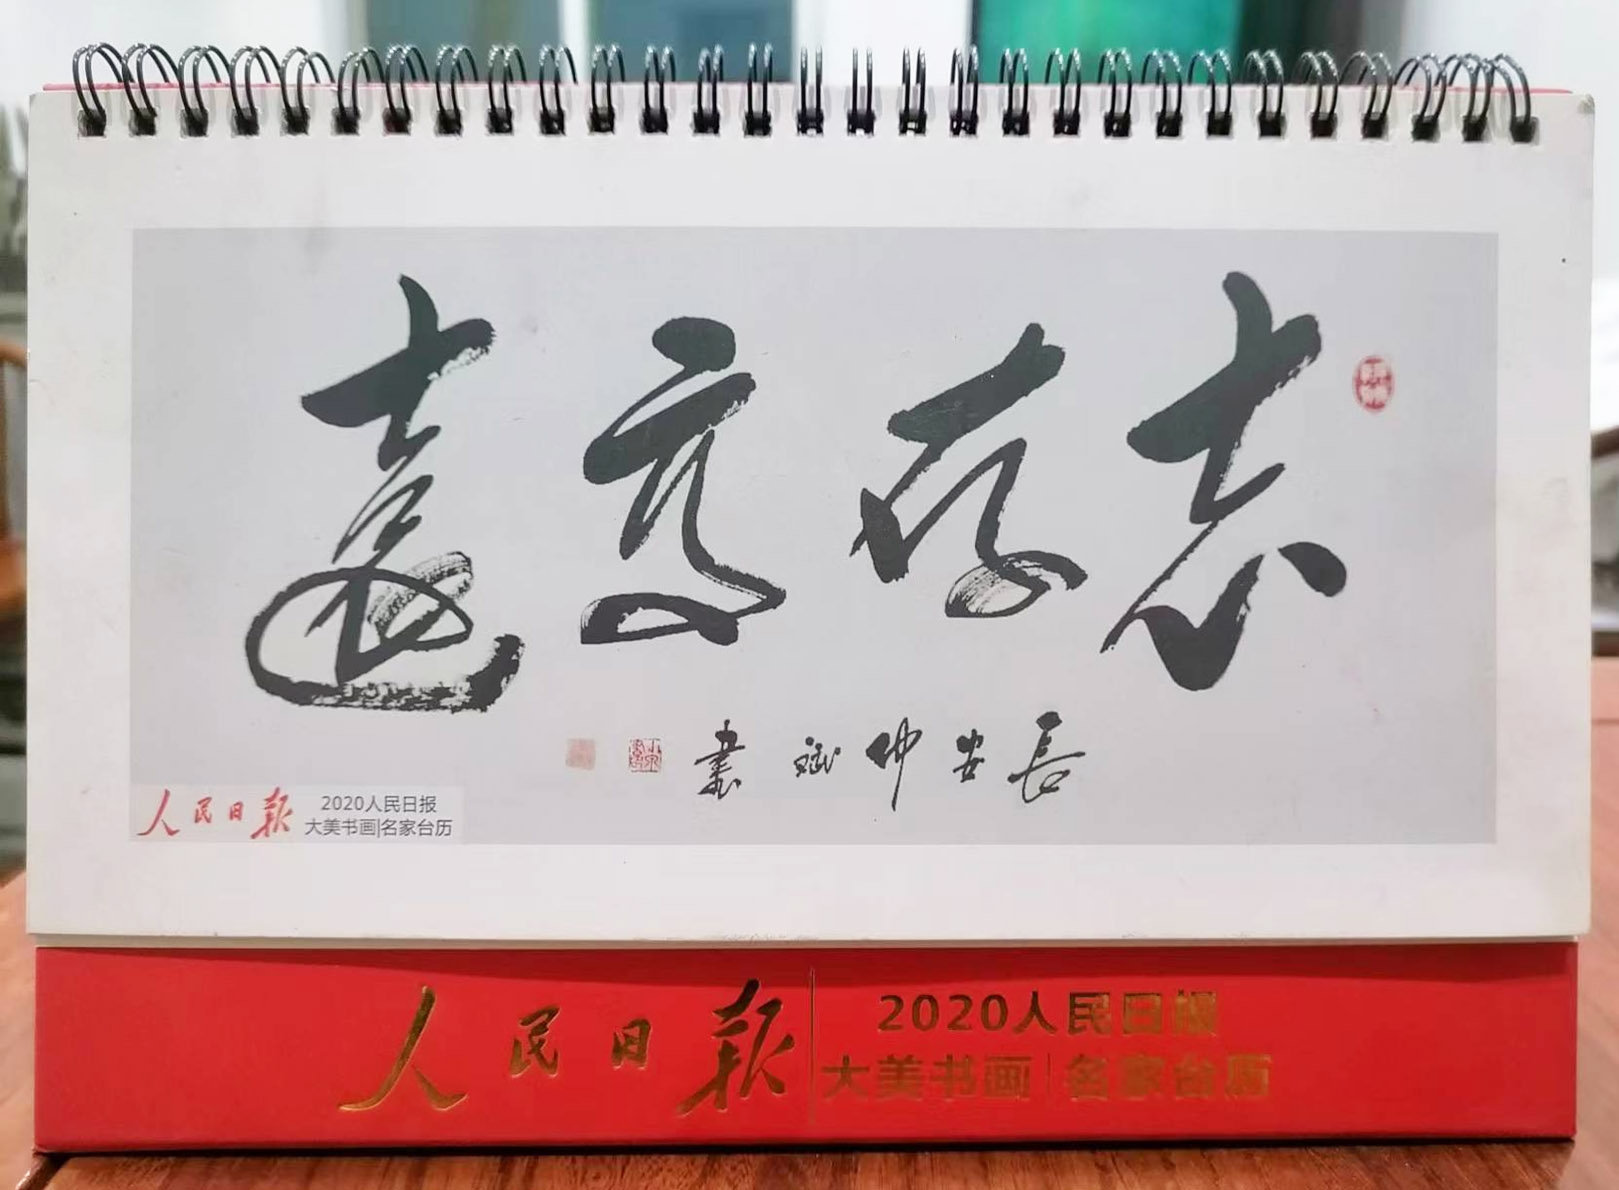 志存高遠
長安仲斌書
人民日报
2020人民日报
大美书画|名家台历
人民日报
2020人民日报
大美书画|名家台历